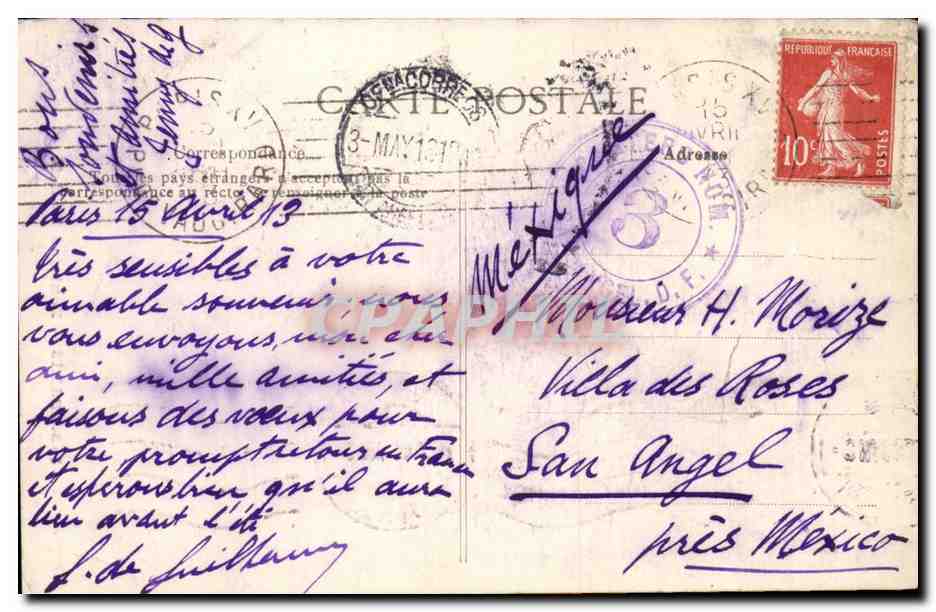 CARTE POSTALE
Correspondance
Adresse
Tous les pays étrangers n'acceptent pas la
correspondance au recto, se renseigner à la poste
RÉPUBLIQUE FRANÇAISE
10c
POSTES
Paris 15 Avril 13
Très sensibles à votre
aimable souvenir, nous
vous envoyons, mon cher
ami, mille amitiés, et
faisons des vœux pour
votre prompt retour en France
et espérons bien qu'il aura
lieu avant l'été
Bons
et amitiés
Mexique
Monsieur H. Morize
Villa des Roses
San Angel
près México
3-MAY 1913
3
D. F.
CPAPHIL